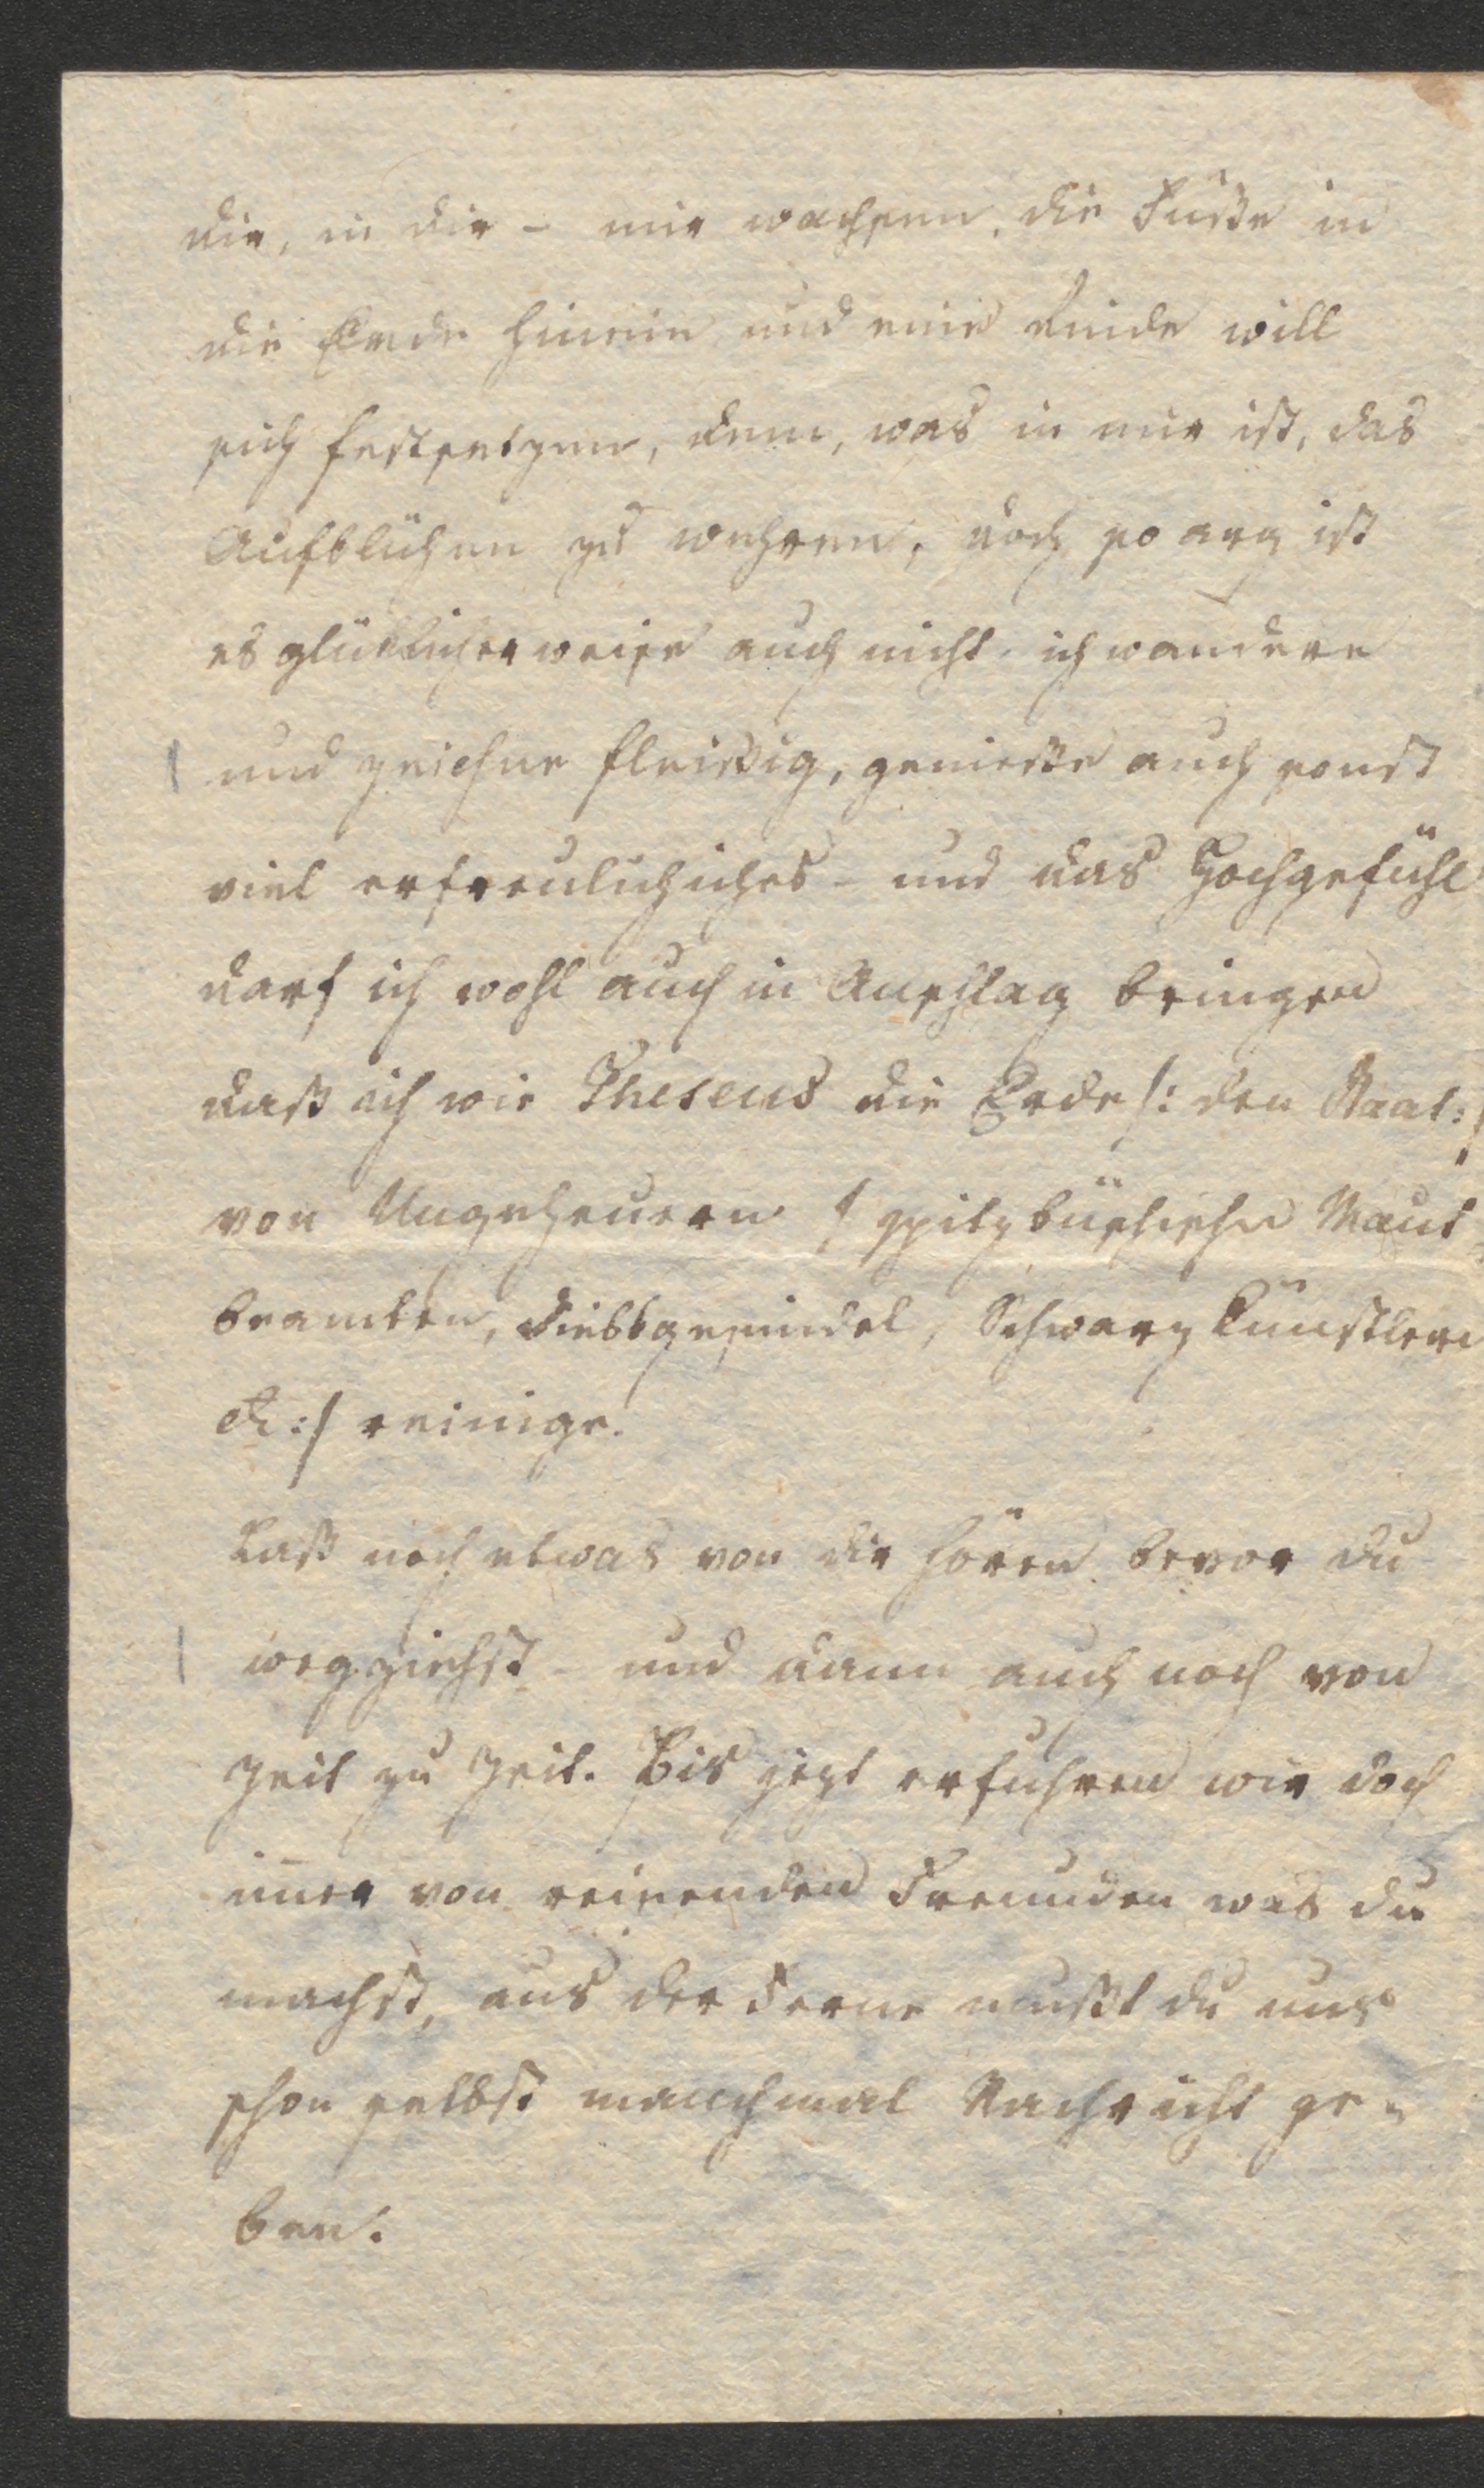 dir, in dir – mir wachsen die Füße in
die Erde hinein und eine Rinde will
sich festsetzen, dem, was in mir ist, das
Aufblühen zu wehren, doch so arg ist
es glücklicherweise auch nicht. ich wandere
und zeichne fleissig, genieße auch sonst
viel erfreulichiches – und das Hochgefühl
darf ich wohl auch in Anschlag bringen
daß ich wie Theseus die Erde /: den Staat :/
von Ungeheuern / spitzbübischen Maut
beamten, Diebsgesindel, Schwarzkünstlern
etc :/ reinige.
Laß noch etwas von dir hören bevor du
wegziehst – und dann auch noch von
Zeit zu Zeit. Bis jezt erfuhren wir doch
im̄er von reisenden Freunden was du
machst, aus der Ferne mußt du uns
schon selbst manchmal Nachricht ge-
ben.